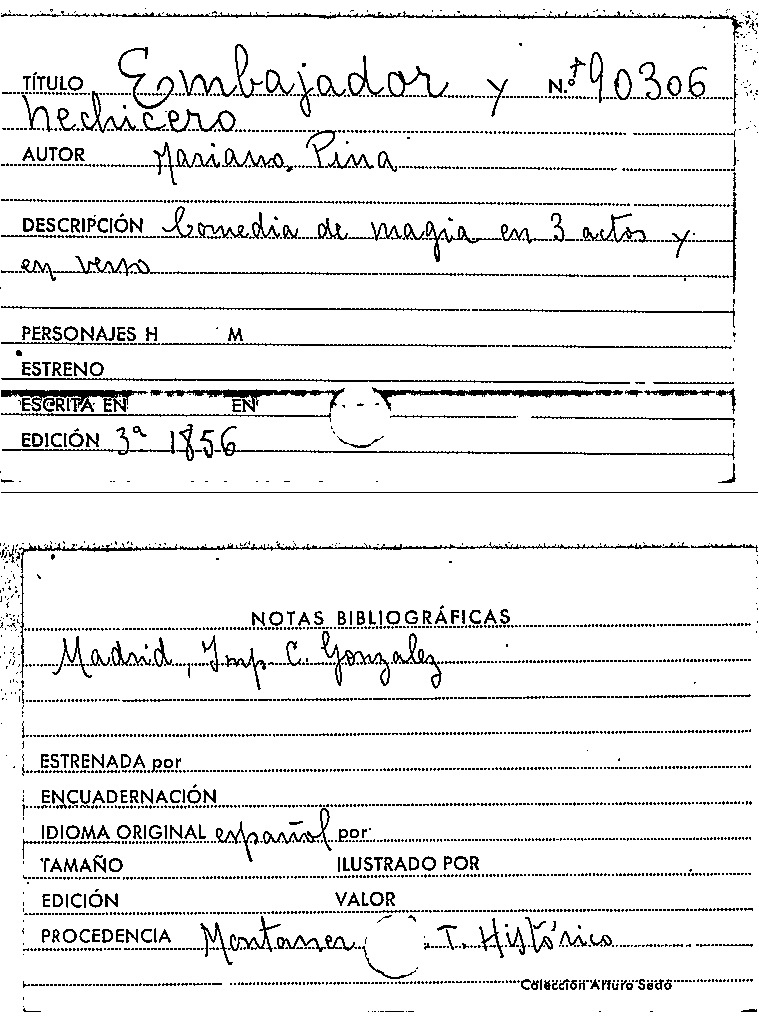 TÍTULO Embajador y N.º +90306
hechicero
AUTOR Mariano Pina
DESCRIPCIÓN Comedia de magia en 3 actos y
en verso
PERSONAJES H M
ESTRENO
ESCRITA EN EN
EDICIÓN 3ª 1856
NOTAS BIBLIOGRÁFICAS
Madrid, Imp C. Gonzalez
ESTRENADA por
ENCUADERNACIÓN
IDIOMA ORIGINAL español por
TAMAÑO ILUSTRADO POR
EDICIÓN VALOR
PROCEDENCIA Montaner T. Histórico
Colección Arturo Sedó